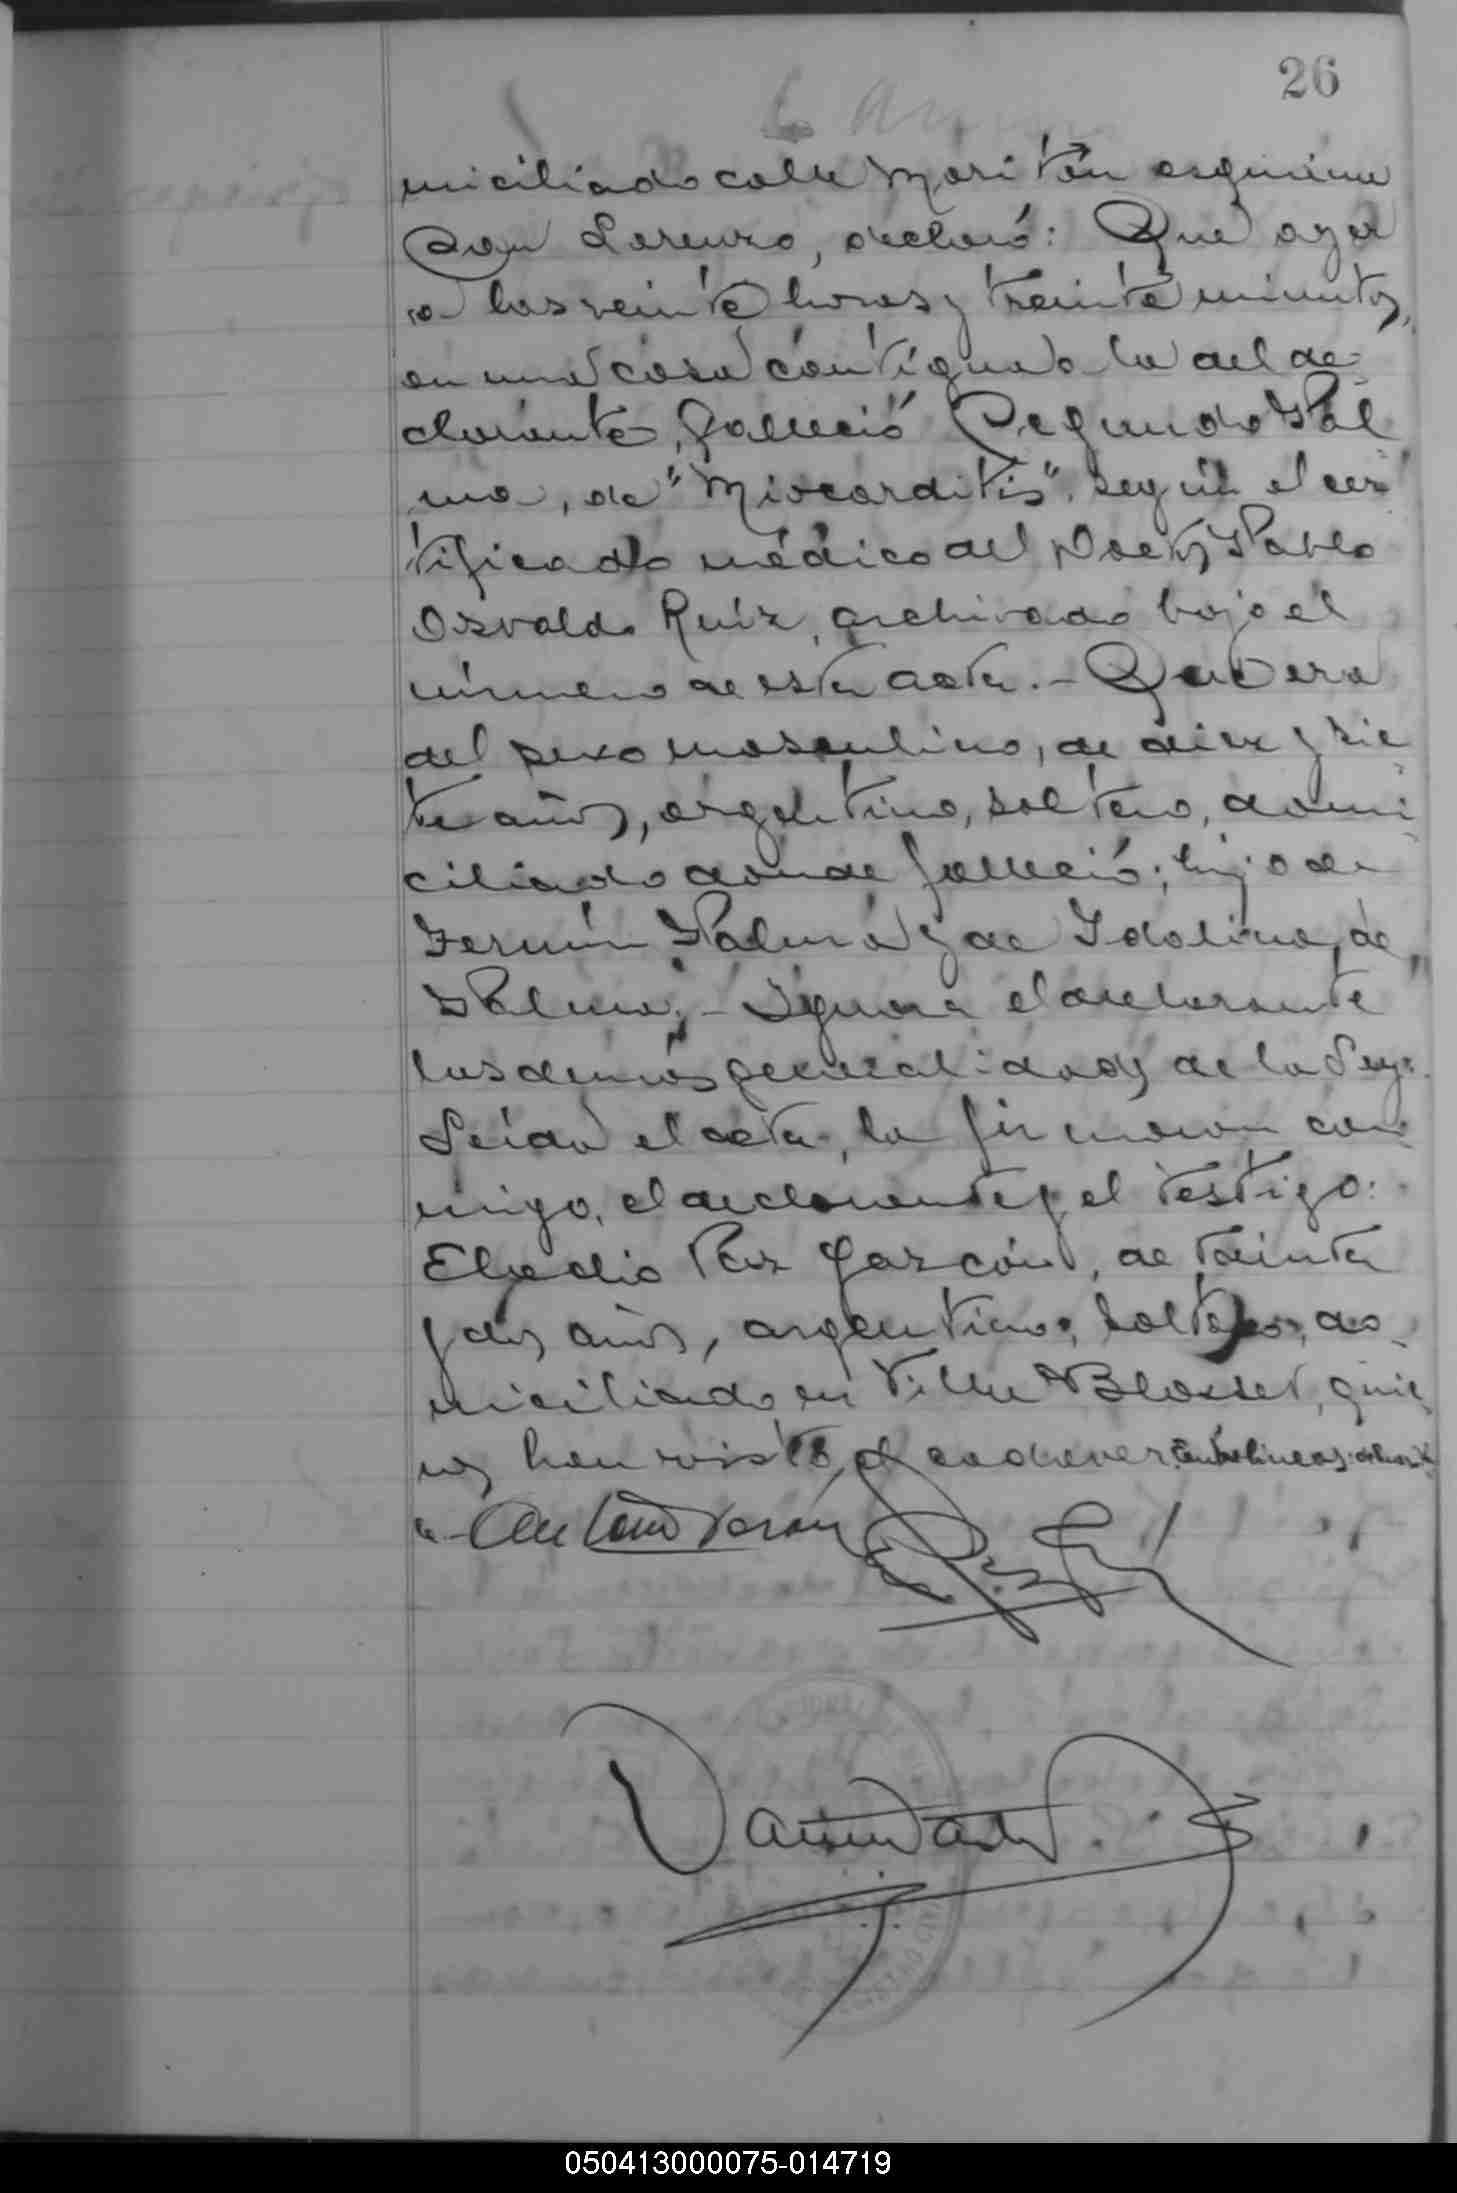 26
miciliado calle Maritán esquina
San Lorenzo, declaró: Que ayer
a las veinte horas y treinta minutos,
en una casa contigua a la del de-
clarante, falleció Segundo Pal
ma, de "Miocarditis", según el cer
tificado médico del Doctor Pablo
Osvaldo Ruiz, archivado bajo el
número de esta acta.- Que era
del sexo masculino, de diez y sie
te años, argentino, soltero, domi
ciliado donde falleció; hijo de
Fermín Palma y de Idolina de
Palma.- Ignora el declarante
las demás generalidades de la Ley.
Leída el acta, la firmaron con
migo, el declarante y el testigo:
Eladio Paz Garzón, de treinta
y dos años, argentino, soltero, do
miciliado en Villa Blosset, quie
nes han visto el cadaver. Entrelíneas:
050413000075-014719